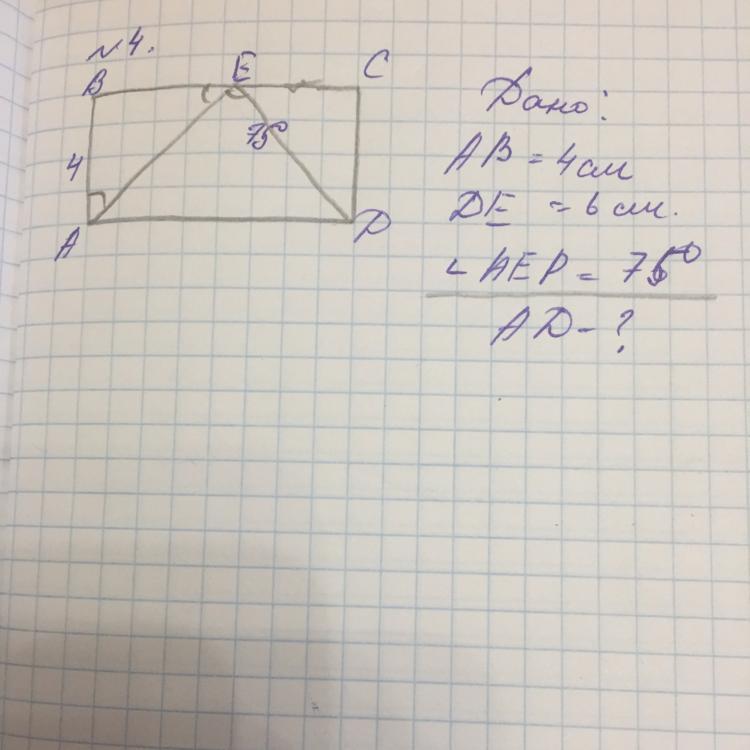 №4.
B E C
75°
4
A D
Дано:
AB = 4 см
DE = 6 см.
∠ AED = 75°
AD - ?